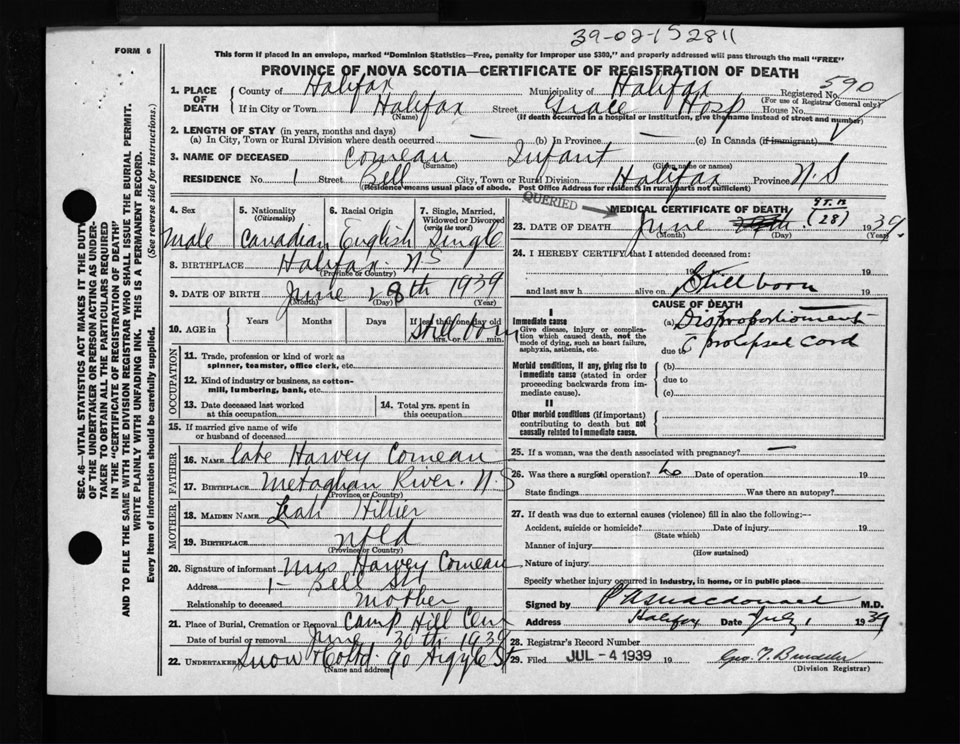 39-02-152811
FORM 6
This form if placed in an envelope, marked "Dominion Statistics—Free, penalty for improper use $300," and properly addressed will pass through the mail "FREE"
PROVINCE OF NOVA SCOTIA—CERTIFICATE OF REGISTRATION OF DEATH
1. PLACE OF DEATH
County of Halifax Municipality of Halifax Registered No. 590
(For use of Registrar General only)
If in City or Town Halifax Street Grace Hosp House No.
(Name) (If death occurred in a hospital or institution, give the name instead of street and number)
2. LENGTH OF STAY (in years, months and days)
(a) In City, Town or Rural Division where death occurred — (b) In Province — (c) In Canada (if immigrant)
3. NAME OF DECEASED Comeau Infant
(Surname) (Given name or names)
RESIDENCE No. 1 Street Bell City, Town or Rural Division Halifax Province N.S
(Residence means usual place of abode. Post Office Address for residents in rural parts not sufficient)
4. Sex 5. Nationality (Citizenship) 6. Racial Origin 7. Single, Married, Widowed or Divorced (write the word)
Male Canadian English Single
8. BIRTHPLACE Halifax N.S
(Province or Country)
9. DATE OF BIRTH June 28th 1939
(Month) (Day) (Year)
10. AGE in Years Months Days If less than one day old
hrs. or min.
Stillborn
OCCUPATION
11. Trade, profession or kind of work as spinner, teamster, office clerk, etc.
12. Kind of industry or business, as cotton-mill, lumbering, bank, etc.
13. Date deceased last worked at this occupation
14. Total yrs. spent in this occupation
15. If married give name of wife or husband of deceased
FATHER
16. Name late Harvey Comeau
17. BIRTHPLACE Metaghan River. N.S
(Province or Country)
MOTHER
18. MAIDEN NAME Leah Hillier
19. BIRTHPLACE Nfld
(Province or Country)
20. Signature of informant Mrs Harvey Comeau
Address 1 - Bell St
Relationship to deceased Mother
21. Place of Burial, Cremation or Removal Camp Hill Cem
Date of burial or removal June 30th 1939
22. UNDERTAKER Snow & Co Ltd 90 Argyle St
(Name and address)
QUERIED
MEDICAL CERTIFICATE OF DEATH
23. DATE OF DEATH June (28) 1939.
(Month) (Day) (Year)
24. I HEREBY CERTIFY that I attended deceased from:
19 19
and last saw h alive on 19
Still born
CAUSE OF DEATH
I
Immediate cause
Give disease, injury or complication which caused death, not the mode of dying, such as heart failure, asphyxia, asthenia, etc.
(a) Disproportionment
due to c prolapsed cord
Morbid conditions, if any, giving rise to immediate cause (stated in order proceeding backwards from immediate cause).
(b)
due to
(c)
II
Other morbid conditions (if important) contributing to death but not causally related to immediate cause.
25. If a woman, was the death associated with pregnancy? —
26. Was there a surgical operation? no Date of operation 19
State findings Was there an autopsy?
27. If death was due to external causes (violence) fill in also the following:—
Accident, suicide or homicide? Date of injury 19
(State which)
Manner of injury
(How sustained)
Nature of injury
Specify whether injury occurred in industry, in home, or in public place
Signed by P A Macdonald M.D.
Address Halifax Date July 1 1939
28. Registrar's Record Number
29. Filed JUL - 4 1939 19
(Division Registrar)
SEC. 46—VITAL STATISTICS ACT MAKES IT THE DUTY
OF THE UNDERTAKER OR PERSON ACTING AS UNDER-
TAKER TO OBTAIN ALL THE PARTICULARS REQUIRED
IN THE "CERTIFICATE OF REGISTRATION OF DEATH" AND
TO FILE THE SAME WITH THE DIVISION REGISTRAR WHO SHALL ISSUE THE BURIAL PERMIT.
WRITE PLAINLY WITH UNFADING INK. THIS IS A PERMANENT RECORD.
Every item of information should be carefully supplied. (See reverse side for instructions.)